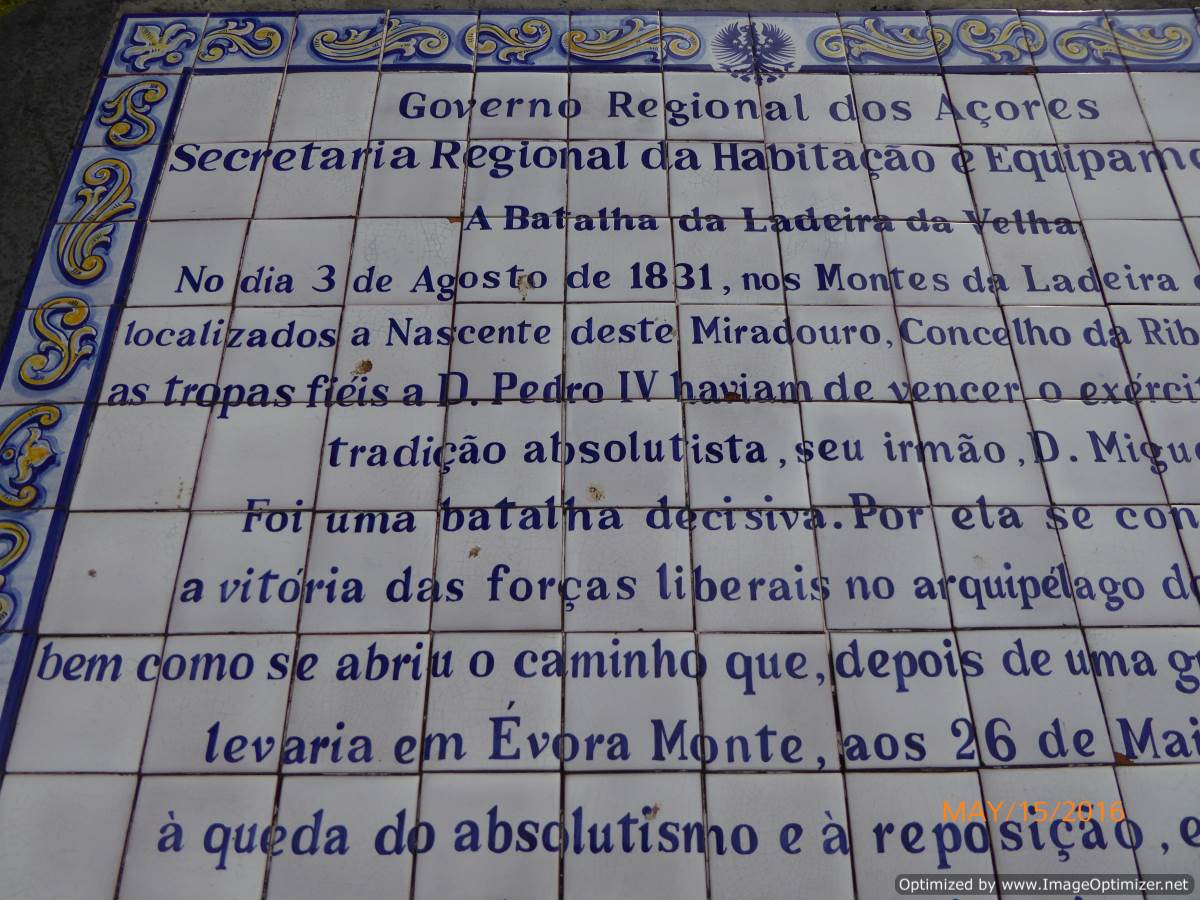 Governo Regional dos Açores
Secretaria Regional da Habitação e Equipam
A Batalha da Ladeira da Velha
No dia 3 de Agosto de 1831, nos Montes da Ladeira
localizados a Nascente deste Miradouro, Concelho da Rib
as tropas fiéis a D. Pedro IV haviam de vencer o exérci
tradição absolutista, seu irmão, D. Migu
Foi uma batalha decisiva. Por ela se con
a vitória das forças liberais no arquipélago d
bem como se abriu o caminho que, depois de uma g
levaria em Évora Monte, aos 26 de Mai
à queda do absolutismo e à reposição, e
MAY/15/2016
Optimized by www.ImageOptimizer.net